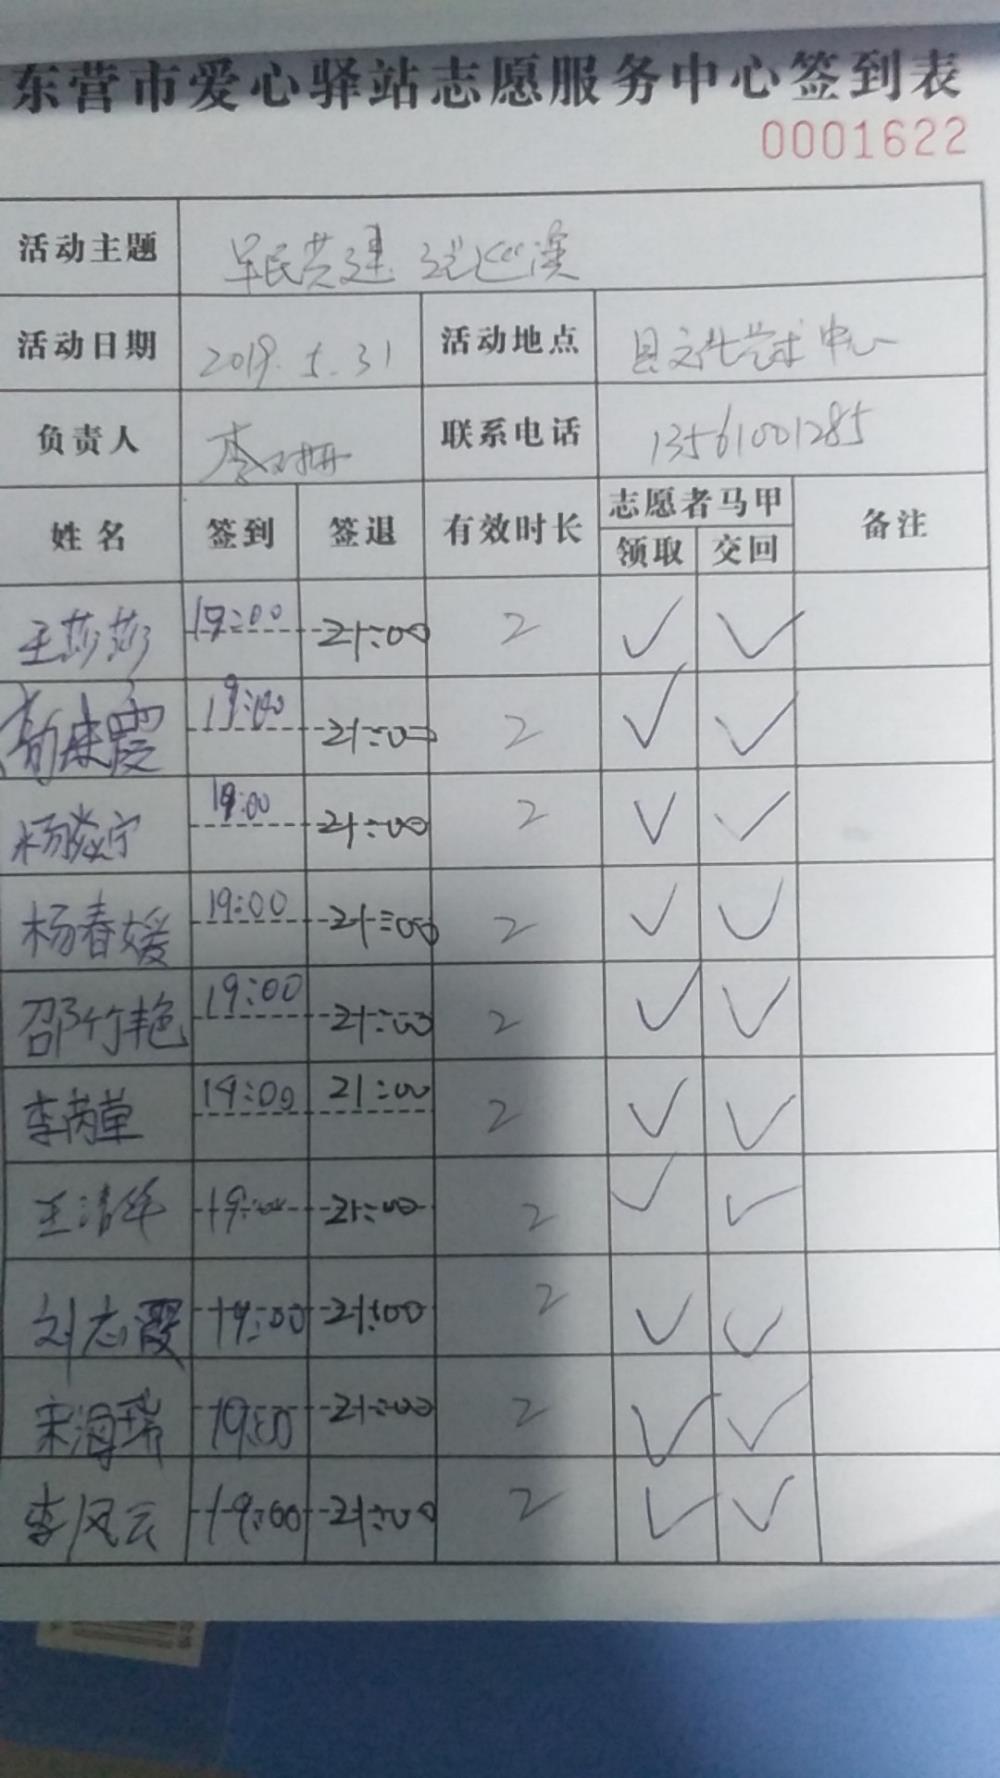 东营市爱心驿站志愿服务中心签到表
0001622
活动主题 军民共建 巡演
活动日期 2019.5.31 活动地点 县文化艺术中心
负责人 李 联系电话 13561001285
姓名 签到 签退 有效时长 志愿者马甲 备注
领取 交回
王莎莎 19:00 21:00 2 ✓ ✓
霞 19:00 21:00 2 ✓ ✓
杨 宁 19:00 21:00 2 ✓ ✓
杨春媛 19:00 21:00 2 ✓ ✓
邵竹艳 19:00 21:00 2 ✓ ✓
李芮草 19:00 21:00 2 ✓ ✓
王清华 19:00 21:00 2 ✓ ✓
刘志霞 19:00 21:00 2 ✓ ✓
宋海瑞 19:00 21:00 2 ✓ ✓
李风云 19:00 21:00 2 ✓ ✓